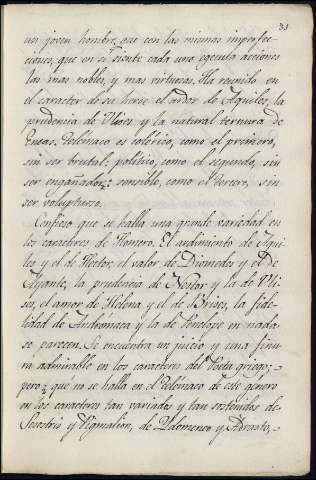 31
un joven hombre, que con las mismas imperfec-
ciones, que en si siente cada uno egecuta acciones
las mas nobles, y mas virtuosas. Ha reunido en
el caracter de su heroe el ardor de Aquiles, la
prudencia de Ulises y la natural ternura de
Eneas. Telemaco es colérico, como el primero,
sin ser brutal; politico, como el segundo, sin
ser engañador; sensible, como el tercero, sin
ser voluptuoso.
Confieso que se halla una grande variedad en
los caracteres de Homero. El ardimiento de Aqui-
les y el de Hector, el valor de Diomedes y de
Ayante, la prudencia de Nestor y la de Uli-
ses, el amor de Helena y el de Brises, la fide-
lidad de Andrómaca y la de Penelope en nada
se parecen. Se encuentra un juicio y una finu-
ra admirable en los caracteres del Poeta griego;
pero ¿que no se halla en el Telemaco de este genero
en los caracteres tan variados y tan sostenidos de
Sesostris y Pigmalion, de Ydomeneo y Adrasto,